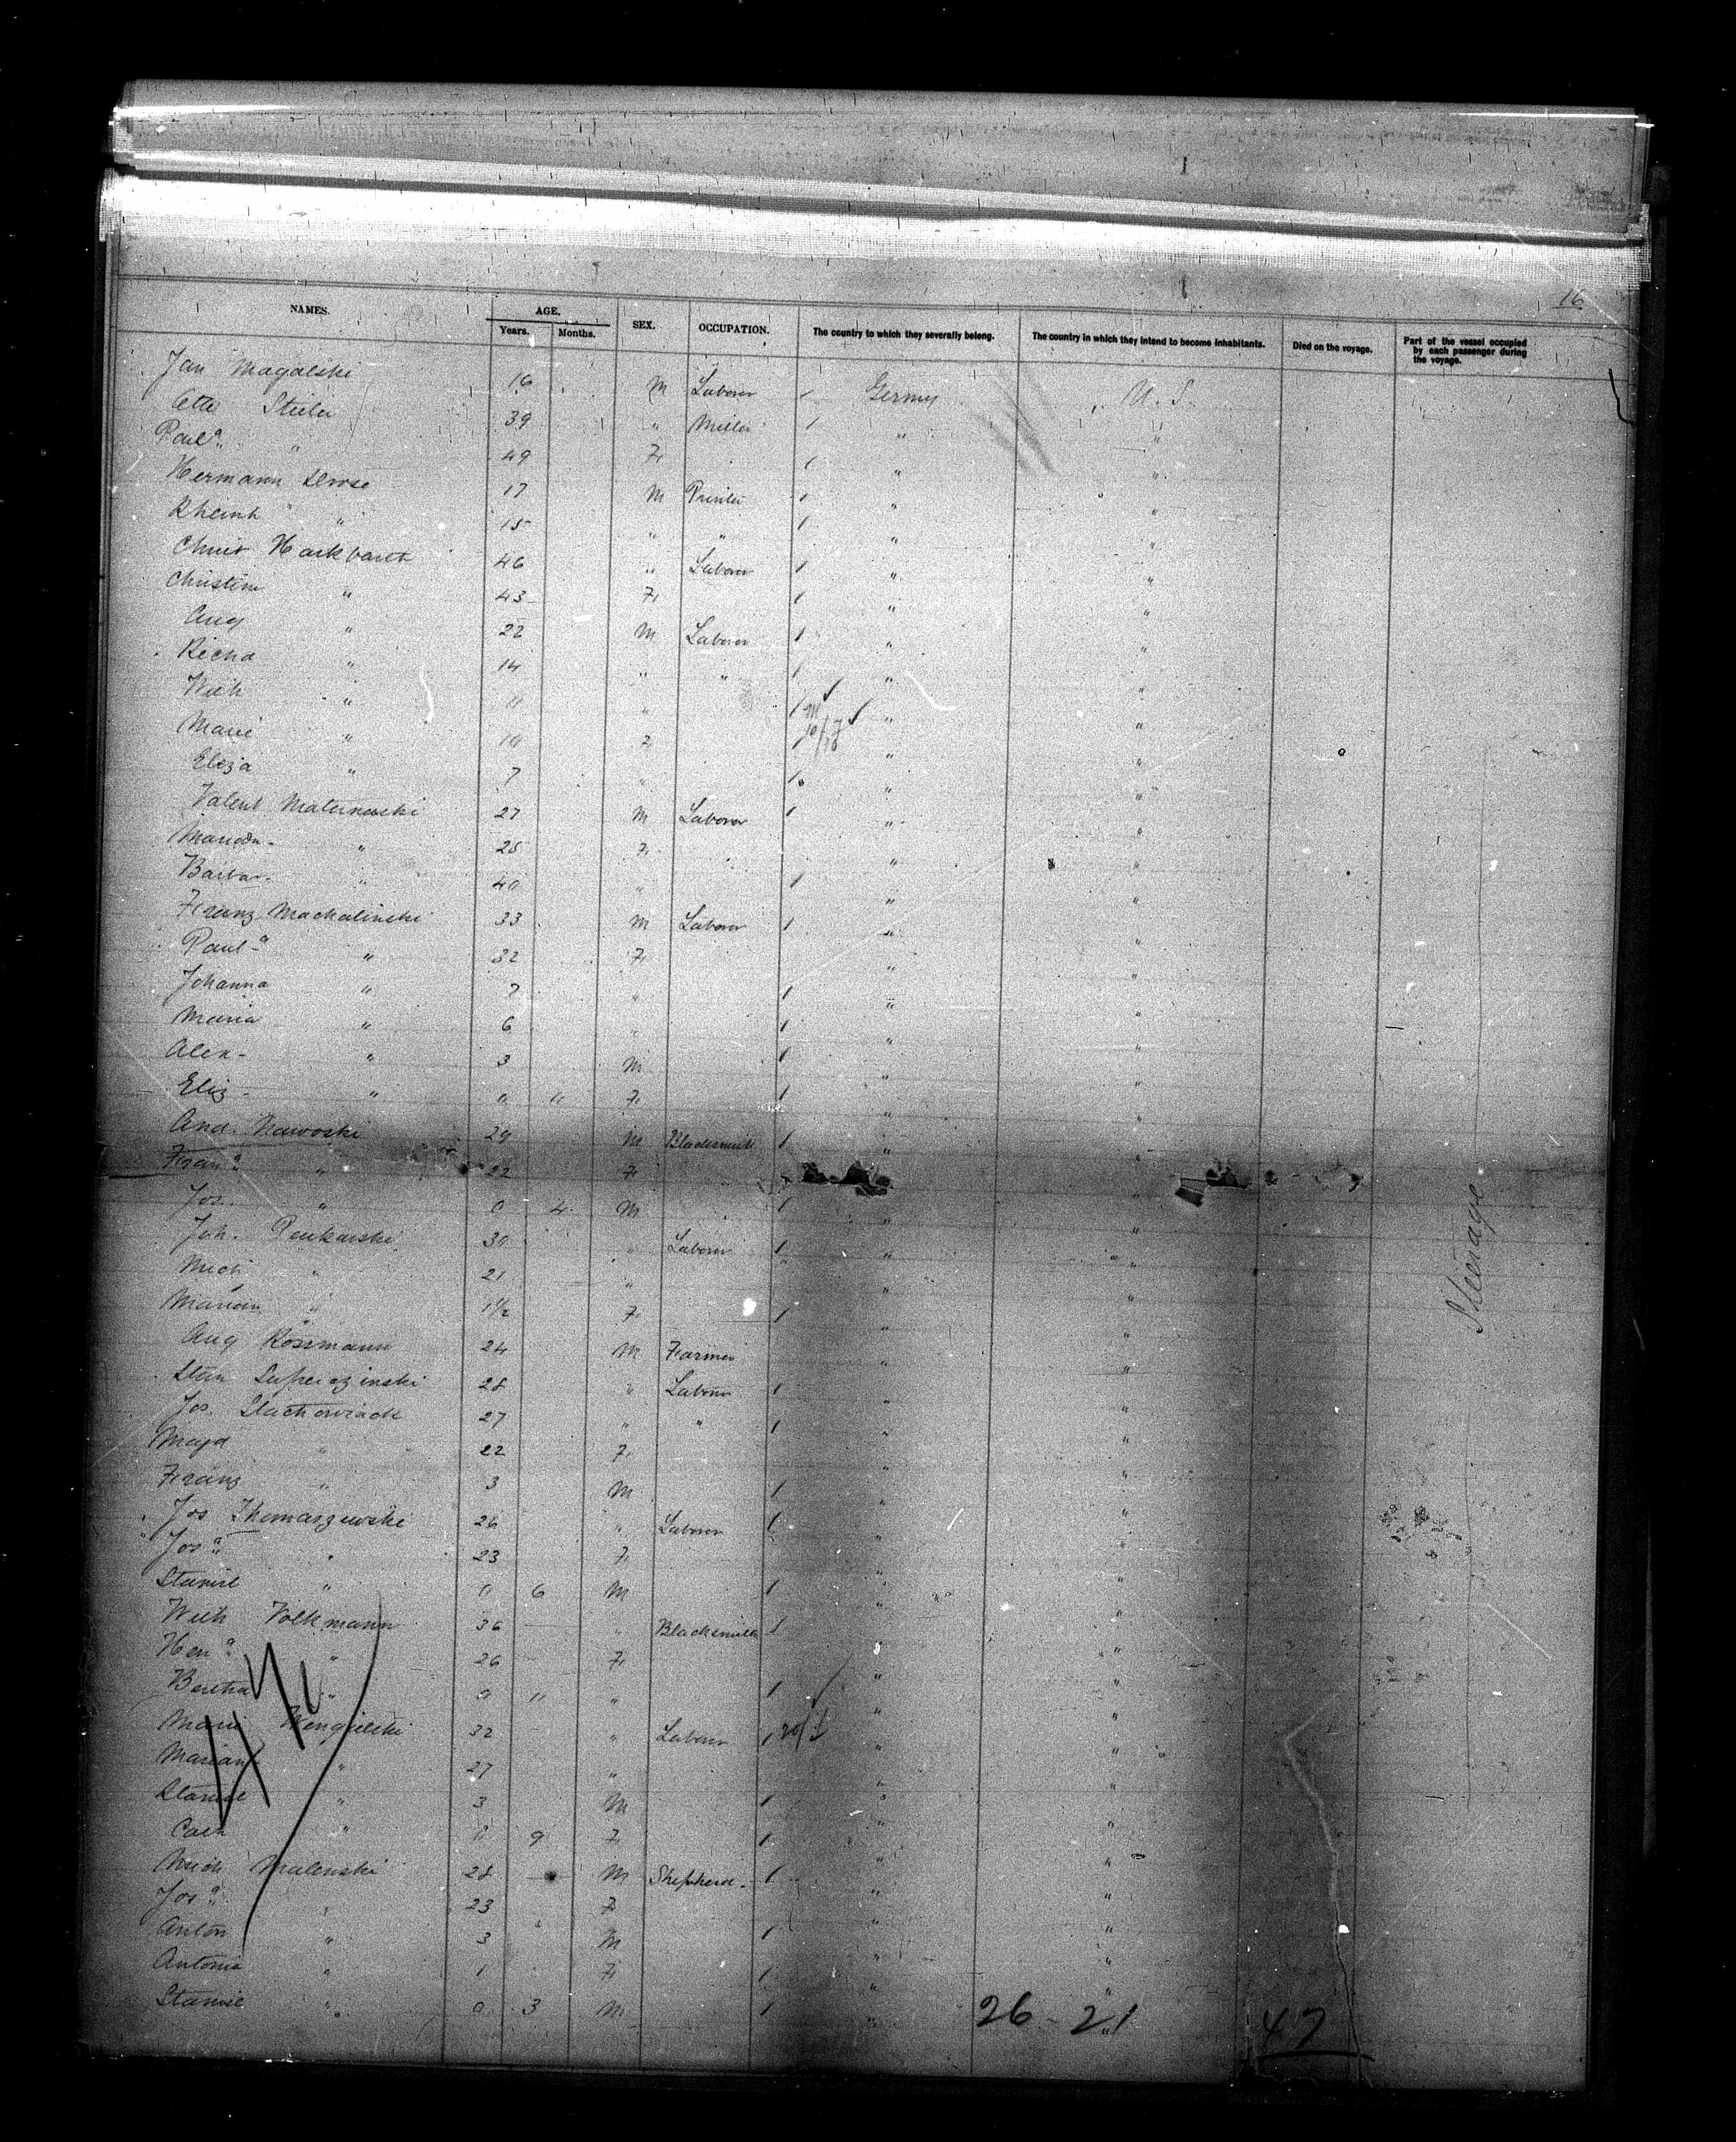 16
NAMES. AGE. Years. Months. SEX. OCCUPATION. The country to which they severally belong. The country in which they intend to become inhabitants. Died on the voyage. Part of the vessel occupied by each passenger during the voyage.
Jan Magalski 16 M Laborer 1 Germy U. S.
Otto Stieler 39 " Miller 1 " "
Paula " 49 F 1 " "
Hermann 17 M Printer 1 " "
Rheinh " 15 " " 1 " "
Christ Hackbarth 46 " Laborer 1 " "
Christine " 43 F 1 " "
Aug " 22 M Laborer 1 " "
Richd " 14 " " 1 " "
Wilh " 11 " 1 " "
Marie " F 1 " "
Eliza " 7 " 1 " "
Valent Maternowski 27 M Laborer 1 " "
" 25 F " "
Barbar. " 40 " 1 " "
Franz Mackalinski 33 M Laborer 1 " "
Paul-a " 32 F " "
Johanna " 7 " 1 " "
Maria " 6 " 1 " "
Alex- " 3 M 1 " "
Eliz- " 0 11 F 1 " "
And. Nawoski 29 M Blacksmith 1 " "
Fran.a " 22 F "
Jos. " 0 4 M 1 " "
Joh. 30 " Laborer 1 " "
Mich " 21 " " "
Mariann " 1 1/2 F 1 " "
Aug Rossmann 24 M Farmer " "
Stan 28 " Laborer 1 " "
Jos. Stachowiack 27 " " 1 " "
Magd " 22 F " "
Franz " 3 M 1 " "
Jos Thomaszewski 26 " Laborer 1 " "
Jos.a " 23 F " "
Stanisl " 0 6 M 1 " "
Wilh Volkmann 36 " Blacksmith 1 " "
Hen.a " 26 F " "
Bertha " 0 11 " 1 " "
Marie 32 " Laborer 1 " "
Mariann " 27 " " "
Stanisl " 3 M 1 " "
Cath " 0 9 F 1 " "
Mich Malenski 28 M Shepherd. 1 " "
Jos.a " 23 F " "
Anton " 3 M 1 " "
Antonia " 1 F 1 " "
Stanisl " 0 3 M 1 " "
Steerage
26 - 21 47